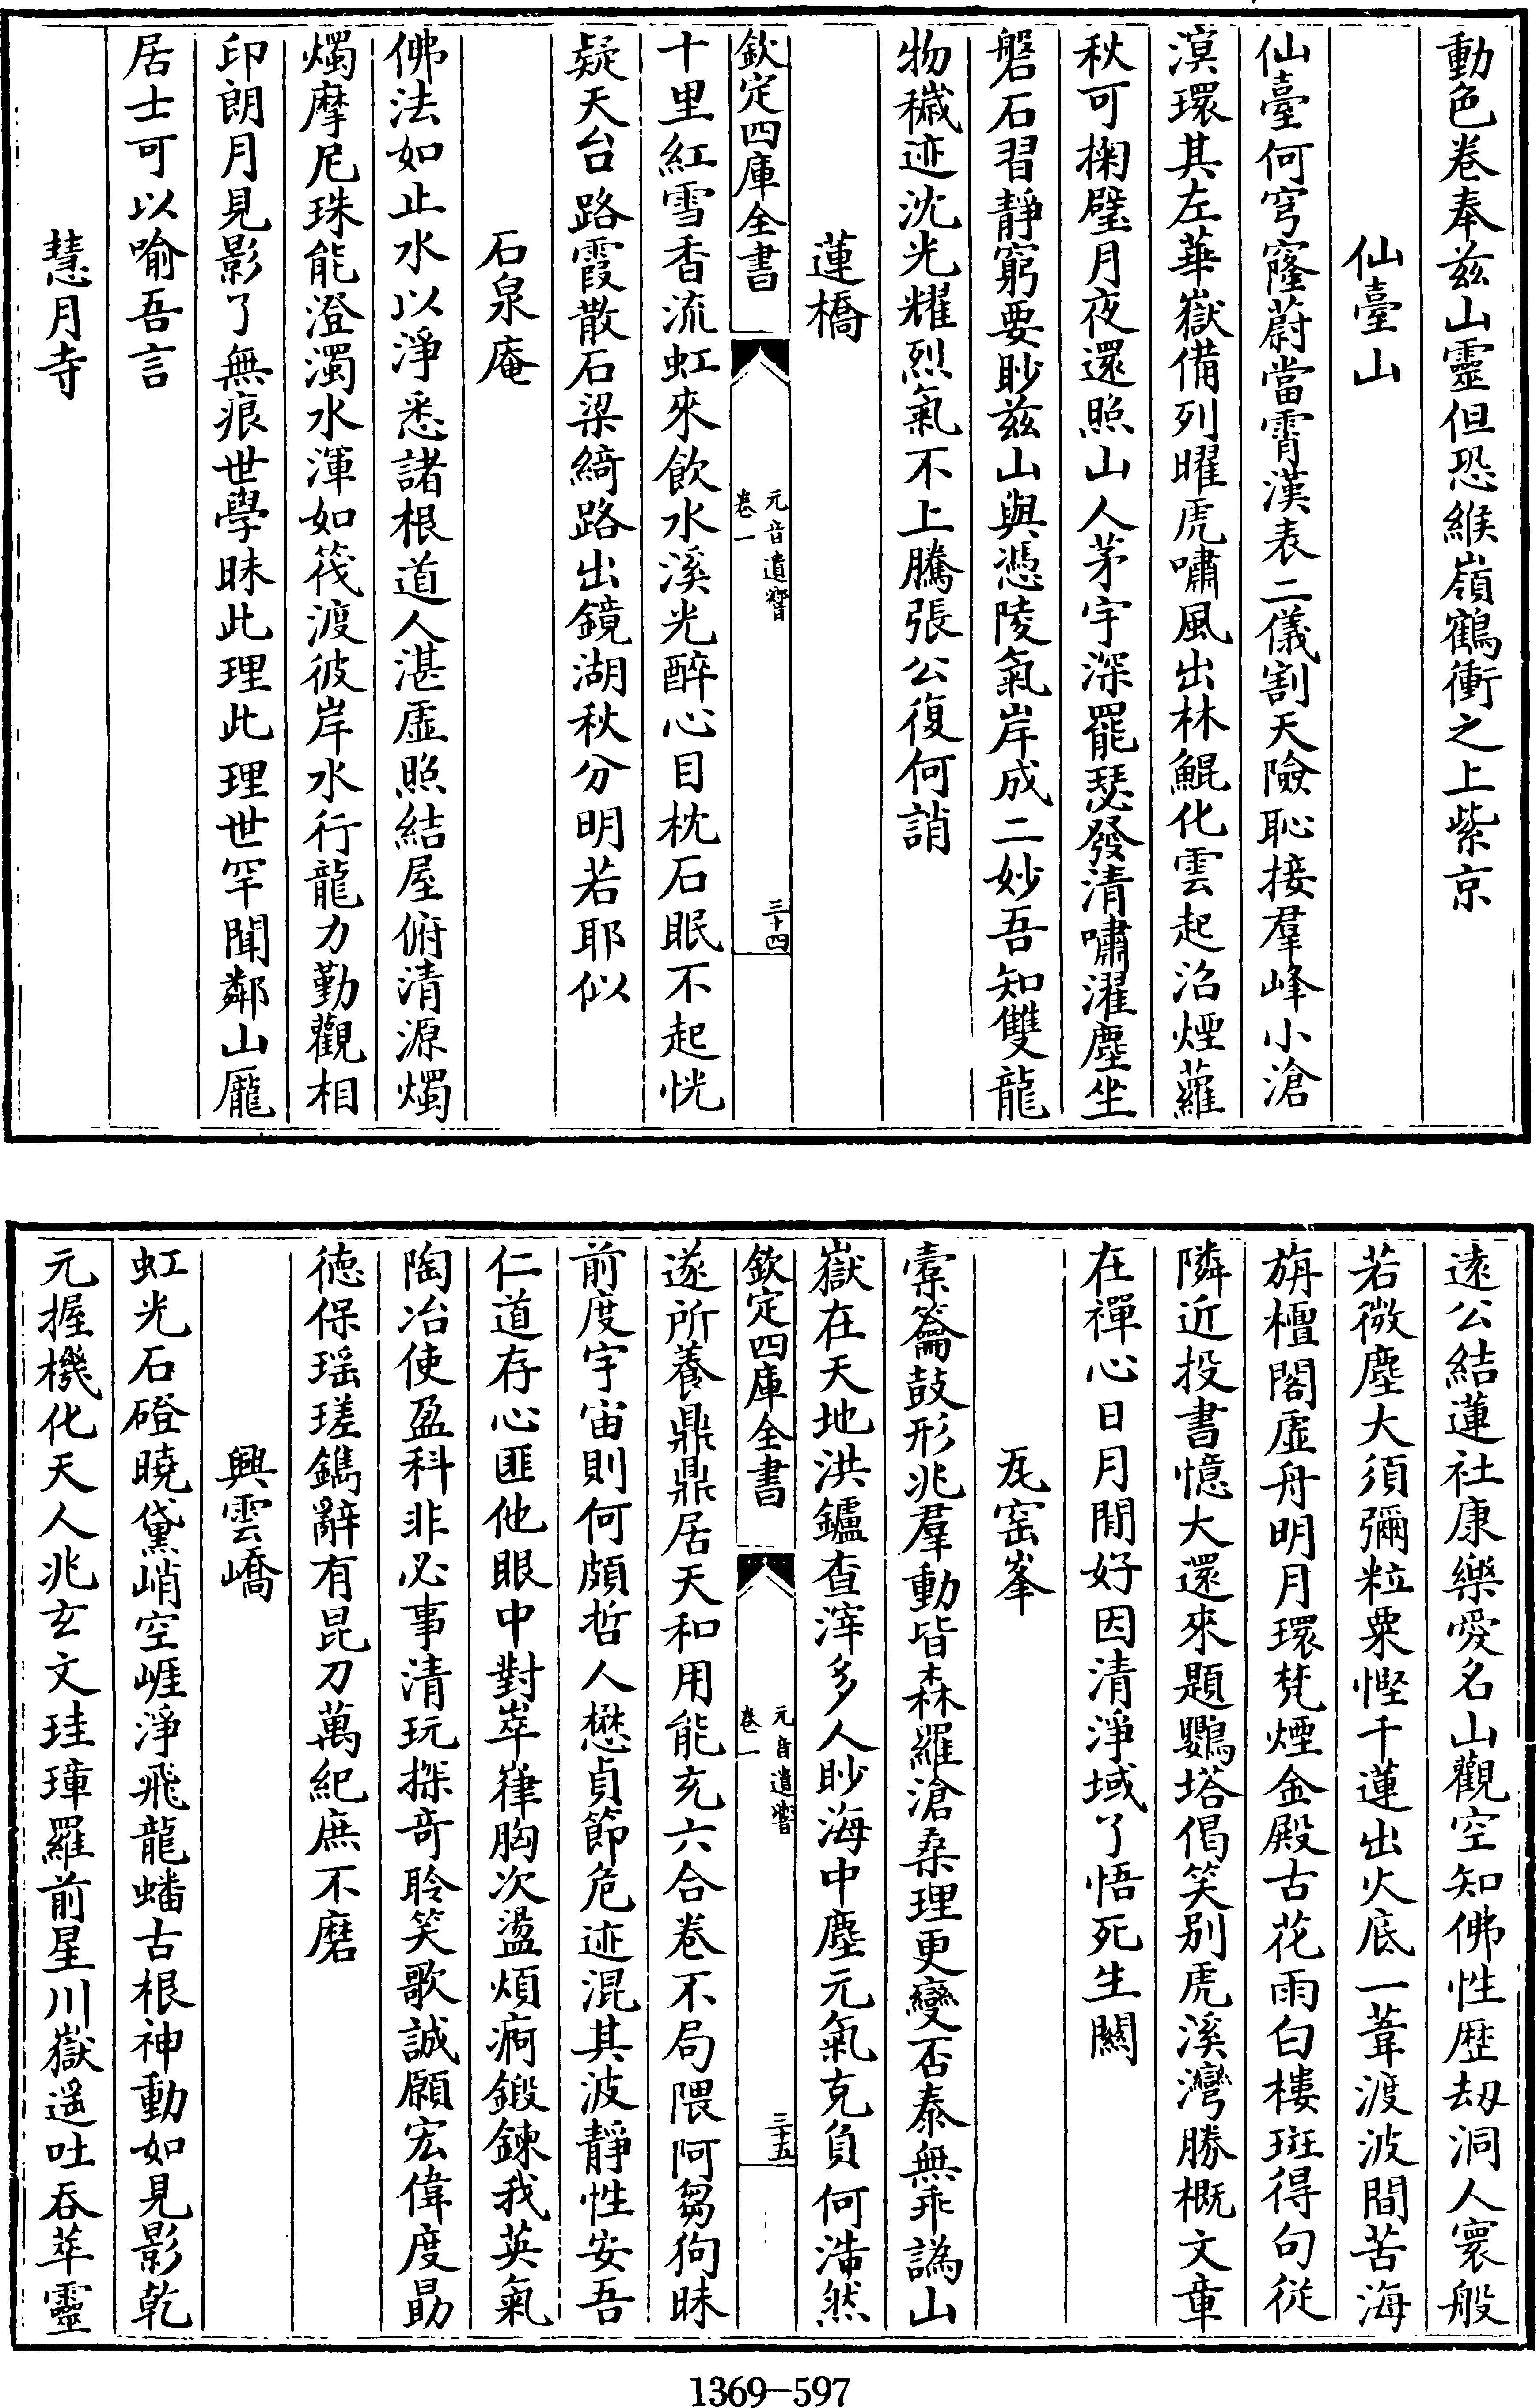 動色卷奉兹山靈但恐緱嶺鶴衝之上紫京
仙臺山
仙臺何穹窿蔚當霄漢表二儀割天險恥接羣峰小滄
溟環其左華嶽備列曜虎嘯風出林鯤化雲起沼煙蘿
秋可掬璧月夜還照山人茅宇深罷瑟發清嘯濯塵坐
磐石習靜窮要眇兹山與憑陵氣岸成二妙吾知雙龍
物穢迹沈光耀烈氣不上騰張公復何誚
蓮橋
欽定四庫全書
元音遺響
卷一
三十四
十里紅雪香流虹來飲水溪光醉心目枕石眠不起恍
疑天台路霞散石梁綺路出鏡湖秋分明若耶似
石泉庵
佛法如止水以淨悉諸根道人湛虛照結屋俯清源燭
燭摩尼珠能澄濁水渾如筏渡彼岸水行龍力勤觀相
印朗月見影了無痕世學昧此理此理世罕聞鄰山龐
居士可以喻吾言
慧月寺
遠公結蓮社康樂愛名山觀空知佛性歴刼洞人寰般
若微塵大須彌粒粟慳千蓮出火底一葦渡波間苦海
旃檀閣虛舟明月環梵煙金殿古花雨白樓斑得句従
隣近投書憶大還來題鸚塔偈笑別虎溪灣勝概文章
在禪心日月閒好因清淨域了悟死生關
瓦窑峯
橐籥鼓形兆羣動皆森羅滄桑理更變否泰無乖譌山
嶽在天地洪鑪查滓多人眇海中塵元氣克負何浩然
欽定四庫全書
元音遺響
卷一
三十五
遂所養鼎鼎居天和用能充六合卷不局隈阿芻狗昧
前度宇宙則何頗哲人懋貞節危迹混其波靜性安吾
仁道存心匪他眼中對崒嵂胸次盪煩痾鍛鍊我英氣
陶冶使盈科非必事清玩探奇聆笑歌誠願宏偉度勗
徳保瑶瑳鐫辭有昆刀萬紀庶不磨
興雲嶠
虹光石磴曉黛峭空崕淨飛龍蟠古根神動如見影乾
元握機化天人兆玄文珪璋羅前星川嶽遥吐吞萃靈
1369—597